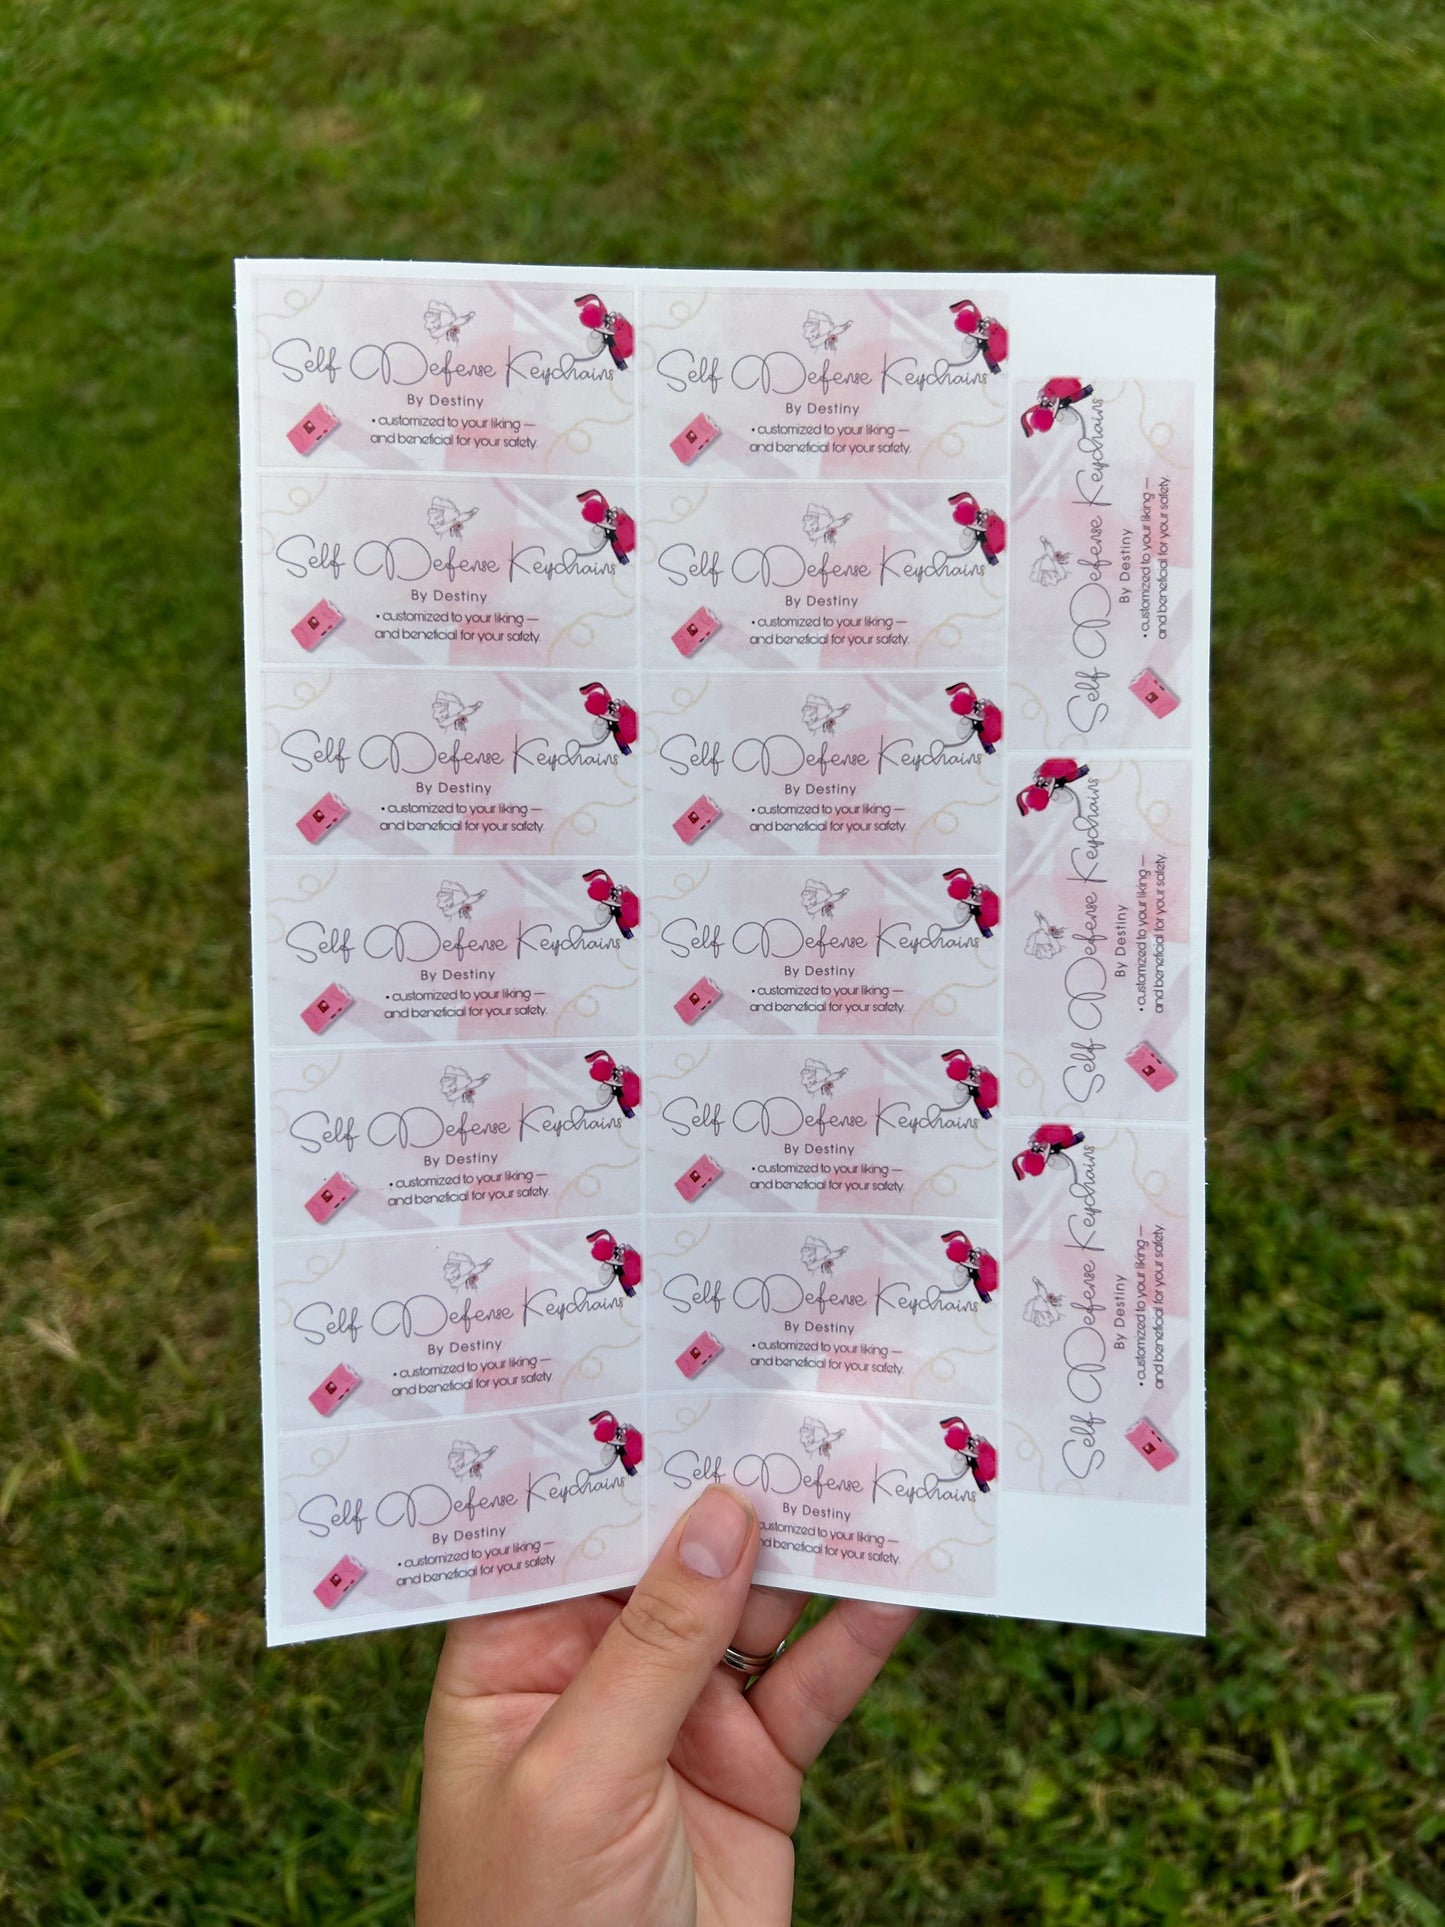 Self Defense Keychains
By Destiny
• customized to your liking —
and beneficial for your safety.
Self Defense Keychains
By Destiny
• customized to your liking —
and beneficial for your safety.
Self Defense Keychains
By Destiny
• customized to your liking —
and beneficial for your safety.
Self Defense Keychains
By Destiny
• customized to your liking —
and beneficial for your safety.
Self Defense Keychains
By Destiny
• customized to your liking —
and beneficial for your safety.
Self Defense Keychains
By Destiny
• customized to your liking —
and beneficial for your safety.
Self Defense Keychains
By Destiny
• customized to your liking —
and beneficial for your safety.
Self Defense Keychains
By Destiny
• customized to your liking —
and beneficial for your safety.
Self Defense Keychains
By Destiny
• customized to your liking —
and beneficial for your safety.
Self Defense Keychains
By Destiny
• customized to your liking —
and beneficial for your safety.
Self Defense Keychains
By Destiny
• customized to your liking —
and beneficial for your safety.
Self Defense Keychains
By Destiny
• customized to your liking —
and beneficial for your safety.
Self Defense Keychains
By Destiny
• customized to your liking —
and beneficial for your safety.
Self Defense Keychains
By Destiny
ustomized to your liking —
nd beneficial for your safety.
Self Defense Keychains
By Destiny
• customized to your liking —
and beneficial for your safety.
Self Defense Keychains
By Destiny
• customized to your liking —
and beneficial for your safety.
Self Defense Keychains
By Destiny
• customized to your liking —
and beneficial for your safety.